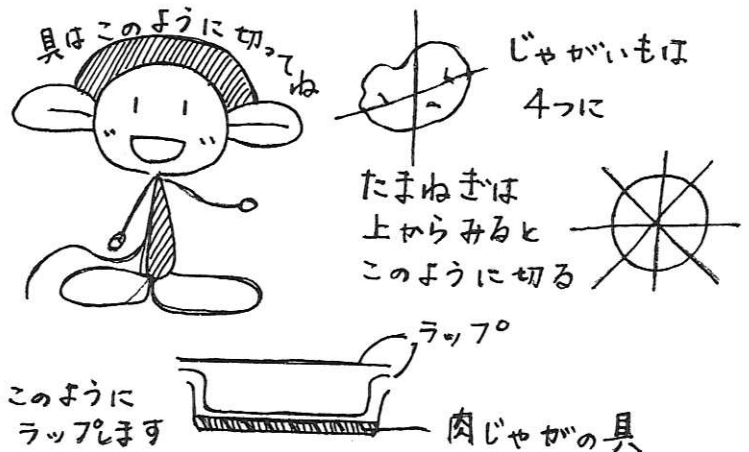 具はこのように切ってね
じゃがいもは
4つに
たまねぎは
上からみると
このように切る
ラップ
このように
ラップします
肉じゃがの具